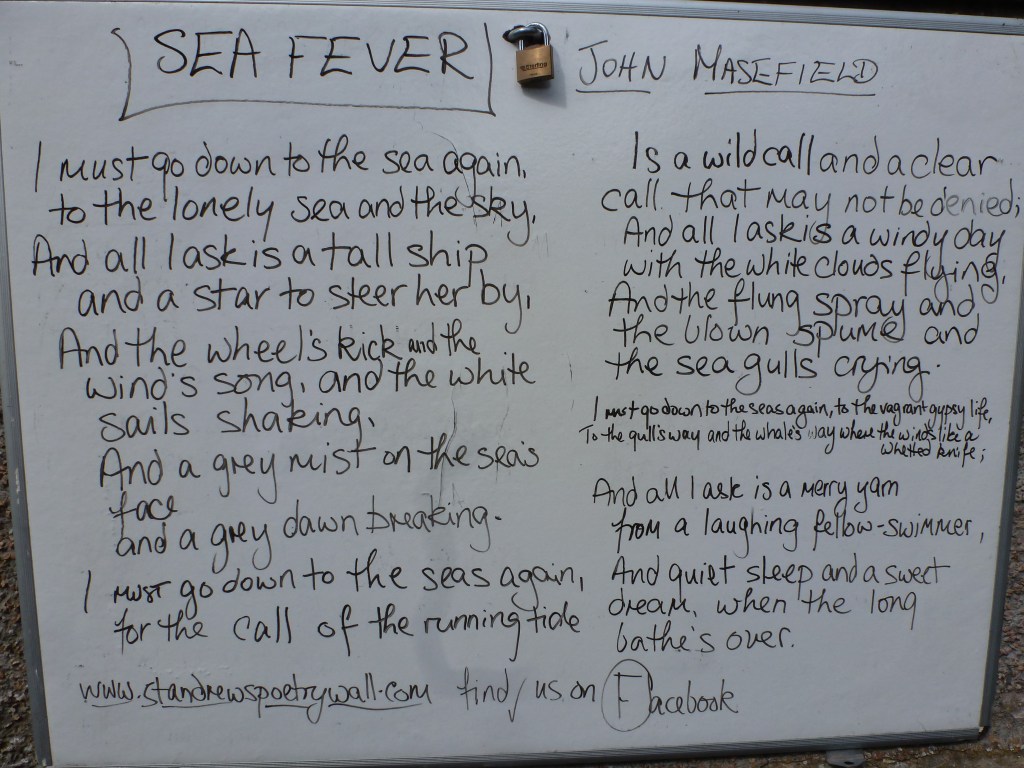 SEA FEVER
JOHN MASEFIELD
I must go down to the sea again,
to the lonely sea and the sky,
And all I ask is a tall ship
and a star to steer her by,
And the wheel's kick and the
wind's song, and the white
sails shaking,
And a grey mist on the sea's
face
and a grey dawn breaking.
I must go down to the seas again,
for the call of the running tide
Is a wild call and a clear
call that may not be denied;
And all I ask is a windy day
with the white clouds flying,
And the flung spray and
the blown spume and
the sea gulls crying.
I must go down to the seas again, to the vagrant gypsy life,
To the gull's way and the whale's way where the winds like a
whetted knife;
And all I ask is a merry yarn
from a laughing fellow-swimmer,
And quiet sleep and a sweet
dream, when the long
bathe's over.
www.standrewspoetrywall.com find us on Facebook